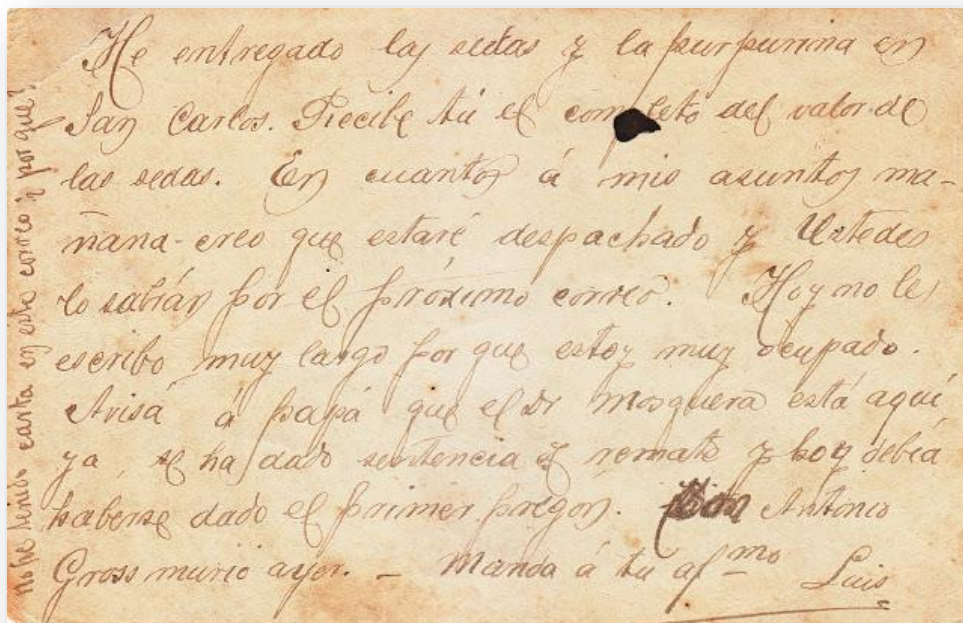 He entregado las sedas y la purpurina en
San Carlos. Recibe tú el completo del valor de
las sedas. En cuanto á mis asuntos ma-
ñana creo que estaré despachado y Ustedes
lo sabrán por el próximo correo. Hoy no les
escribo muy largo por que estoy muy ocupado.
Avisa á papá que el Dr Mosquera está aquí
ya se ha dado sentencia y remate y hoy debia
haberse dado el primer pregón. Don Antonio
Gross murió ayer. - Manda á tu af-mo Luis
no he tenido carta en este correo ¿por qué?